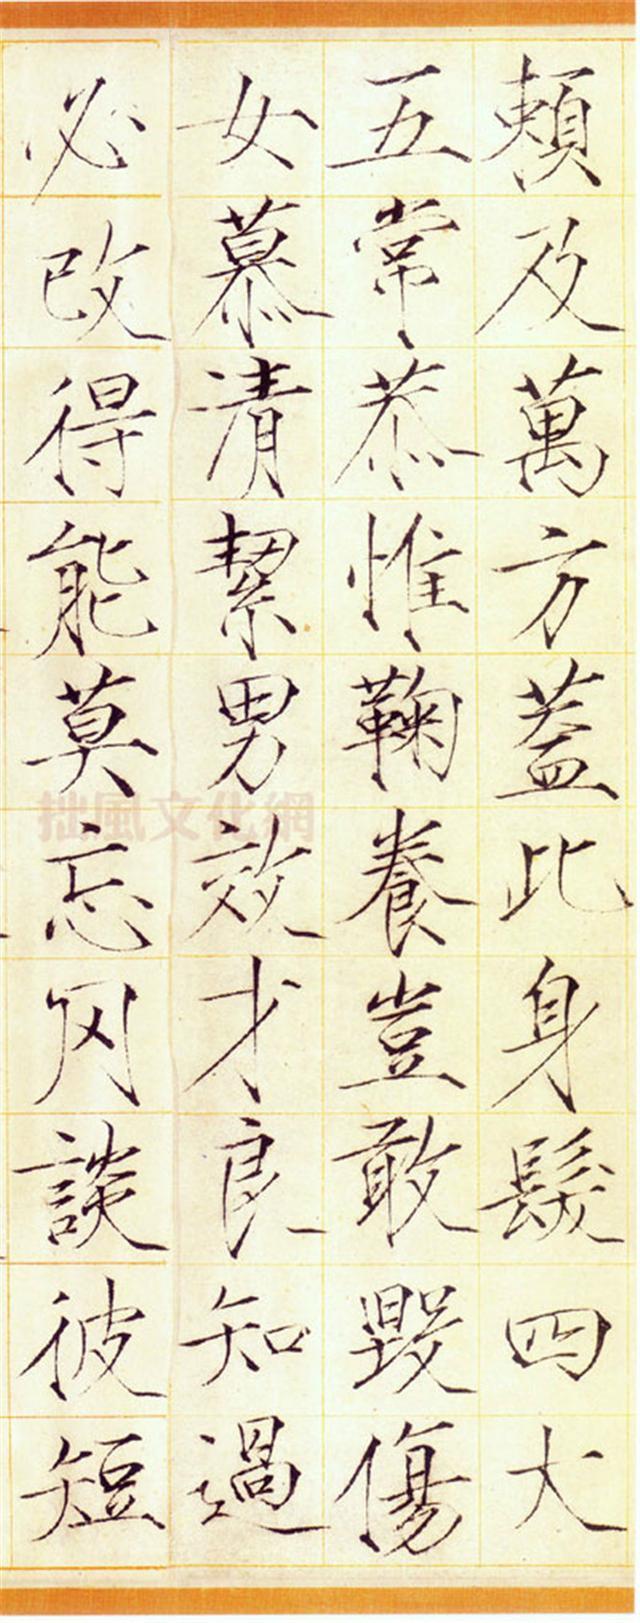 賴及萬方蓋此身髮四大
五常恭惟鞠養豈敢毀傷
女慕清絜男效才良知過
必改得能莫忘罔談彼短
拙風文化網